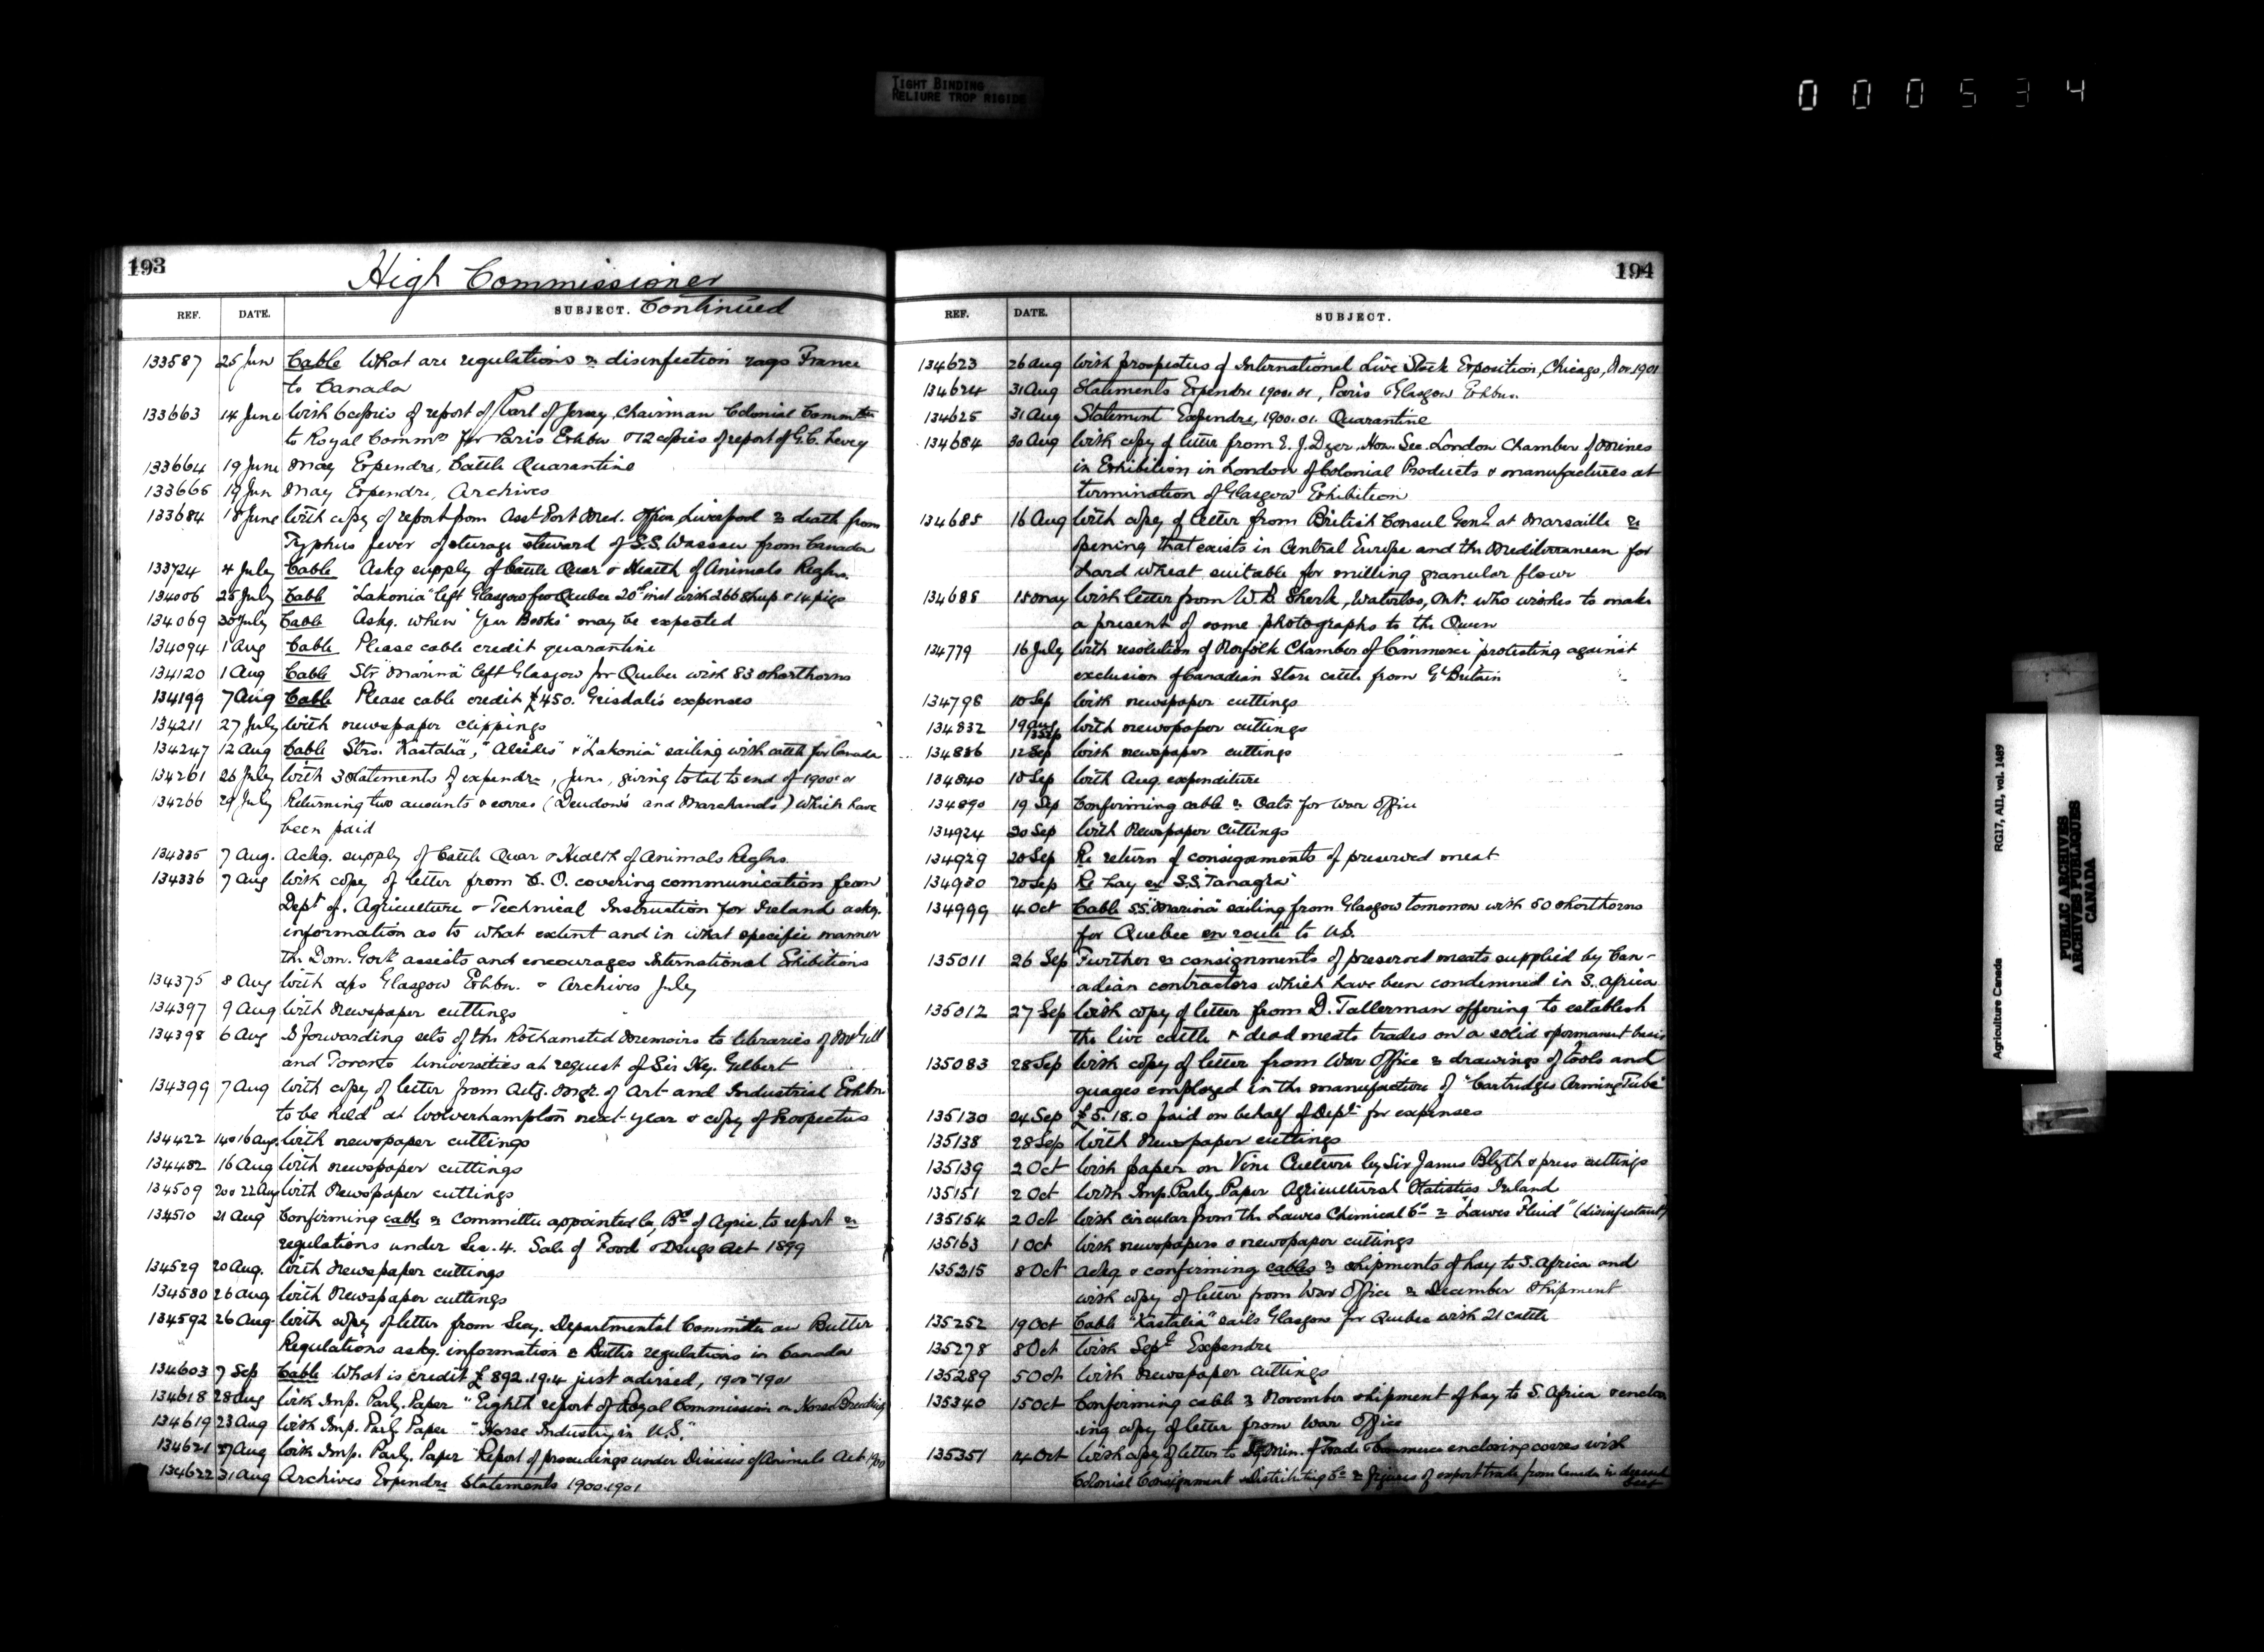 TIGHT BINDING
RELIURE TROP RIGIDE
000534
193
High Commissioner
REF. DATE. SUBJECT. Continued
133587 25 Jun Cable What are regulations re disinfection rags France
to Canada
133663 14 June With 6 copies of report of Earl of Jersey, Chairman Colonial Committee
to Royal Commn for Paris Exhbn & 12 copies of report of G.C. Levey
133664 19 June May Expendre, Cattle Quarantine
133665 19 Jun May Expendre, Archives
133684 18 June With copy of report from Asst Port Med. Officer Liverpool re death from
Typhus fever of steerage steward of S.S. Wassau from Canada
133724 4 July Cable Askg supply of Cattle Quar & Health of Animals Reglns.
134006 25 July Cable "Lakonia" left Glasgow for Quebec 20th inst with 266 sheep & 14 pigs
134069 30 July Cable Askg. when "Year Books" may be expected
134094 1 Aug Cable Please cable credit quarantine
134120 1 Aug Cable Str "Marina" left Glasgow for Quebec with 83 shorthorns
134199 7 Aug Cable Please cable credit £450. Grisdale's expenses
134211 27 July With newspaper clippings
134247 12 Aug Cable Strs. "Kastalia", "Alcides" & "Lakonia" sailing with cattle for Canada
134261 26 July With 3 Statements of expendre, June, giving total to end of 1900-01
134266 29 July Returning two accounts & corres (Deudon's and Marchands) which have
been paid
134335 7 Aug. Ackg. supply of Cattle Quar & Health of Animals Reglns.
134336 7 Aug With copy of letter from C. O. covering communication from
Dept of. Agriculture & Technical Instruction for Ireland askg.
information as to what extent and in what specific manner
the Dom. Govt assists and encourages International Exhibitions
134375 8 Aug With a/cs Glasgow Exhbn. & Archives July
134397 9 Aug With Newspaper cuttings
134398 6 Aug Is forwarding sets of the Rothamsted Memoirs to libraries of McGill
and Toronto Universities at request of Sir Hy. Gilbert
134399 7 Aug With copy of letter from Actg. Mgr. of Art and Industrial Exhbn
to be held at Wolverhampton next year & copy of Prospectus
134422 14 & 16 Aug. With newspaper cuttings
134482 16 Aug With newspaper cuttings
134509 20 & 22 Aug With Newspaper cuttings
134510 21 Aug Confirming cable re Committee appointed by Bd of Agric. to report re
regulations under Sec. 4. Sale of Food & Drugs Act 1899
134529 20 Aug. With Newspaper cuttings
134580 26 Aug With Newspaper cuttings
134592 26 Aug. With copy of letter from Secy. Departmental Committee on Butter
Regulations askg. information re Butter regulations in Canada
134603 7 Sep Cable What is credit £892.19.4 just advised, 1900-1901
134618 28 Aug With Imp. Parly. Paper "Eighth report of Royal Commission on Horse Breeding
134619 23 Aug With Imp. Parly. Paper "Horse Industry in U.S."
134621 27 Aug With Imp. Parly. Paper "Report of proceedings under Diseases of Animals Act 1900
134622 31 Aug Archives Expendre Statements 1900-1901
194
REF. DATE. SUBJECT.
134623 26 Aug With prospectus of International Live Stock Exposition, Chicago, Nov. 1901
134624 31 Aug Statements Expendre 1900.01, Paris & Glasgow Exhbns.
134625 31 Aug Statement Expendre, 1900.01. Quarantine
134684 30 Aug With copy of letter from E. J. Dyer, Hon. Sec. London Chamber of Mines
in Exhibition in London of Colonial Products & manufactures at
termination of Glasgow Exhibition
134685 16 Aug With copy of letter from British Consul Genl at Marsaille re
opening that exists in Central Europe and the Mediterranean for
hard wheat suitable for milling granular flour
134688 15 May With letter from W. D. Sherk, Waterloo, Ont. who wishes to make
a present of some photographs to the Queen
134779 16 July With resolution of Norfolk Chamber of Commerce protesting against
exclusion of Canadian Store cattle from Gt Britain
134798 10 Sep With newspaper cuttings
134832 19 Aug
13 Sep With newspaper cuttings
134836 12 Sep With newspaper cuttings
134840 10 Sep With Aug. expenditure
134890 19 Sep Confirming cable re Oats for War Office
134924 20 Sep With Newspaper cuttings
134929 20 Sep Re return of consignments of preserved meat
134930 20 Sep Re hay ex S.S. "Tanagra"
134999 4 Oct Cable S.S. "Marina" sailing from Glasgow tomorrow with 50 shorthorns
for Quebec en route to U.S.
135011 26 Sep Further re consignments of preserved meats supplied by Can-
adian contractors which have been condemned in S. Africa
135012 27 Sep With copy of letter from D. Tallerman offering to establish
the live cattle & dead meats trades on a solid & permanent basis
135083 28 Sep With copy of letter from War Office re drawings of tools and
guages employed in the manufacture of "Cartridges Arming Tube"
135130 24 Sep £5.18.0 paid on behalf of Dept for expenses
135138 28 Sep With Newspaper cuttings
135139 2 Oct With paper on Vine Culture by Sir James Blyth & press cuttings
135151 2 Oct With Imp. Parly. Paper Agricultural Statistics Ireland
135154 2 Oct With circular from the Lawes Chemical Co re "Lawes Fluid" (disinfectant)
135163 1 Oct With newspapers & newspaper cuttings
135215 8 Oct Ackg & confirming cables re shipments of hay to S. Africa and
with copy of letter from War Office re December shipment
135252 19 Oct Cable "Kastalia" sails Glasgow for Quebec with 21 cattle
135278 8 Oct With Sept Expendre
135289 5 Oct With Newspaper cuttings
135340 15 Oct Confirming cable re November shipment of hay to S. Africa & enclos
ing copy of letter from War Office
135351 14 Oct With copy of letter to Dy. Min. of Trade & Commerce enclosing corres with
Colonial Consignment & Distributing Co re figures of export trade from Canada in dressed
RG17, AII, vol. 1489
Agriculture Canada
PUBLIC ARCHIVES
ARCHIVES PUBLIQUES
CANADA